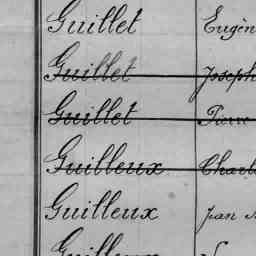 Guillet Eugèn
Guillet Joseph
Guillet Pierre
Guilleux Charl
Guilleux Jean
Guilleux